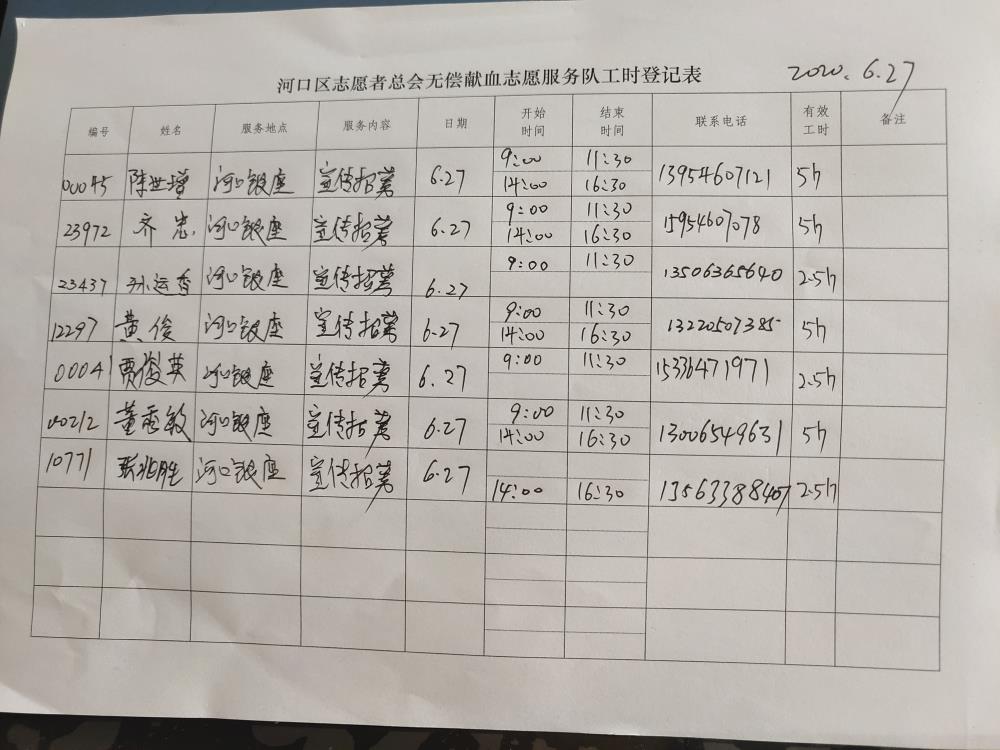 河口区志愿者总会无偿献血志愿服务队工时登记表 2020.6.27
编号 姓名 服务地点 服务内容 日期 开始时间 结束时间 联系电话 有效工时 备注
00045 陈世增 河口银座 宣传招募 6.27 9:00 11:30 13954607121 5h
14:00 16:30
23972 齐忠 河口银座 宣传招募 6.27 9:00 11:30 15954607078 5h
14:00 16:30
23437 孙运香 河口银座 宣传招募 6.27 9:00 11:30 13506365640 2.5h
12297 黄俊 河口银座 宣传招募 6.27 9:00 11:30 13220507385 5h
14:00 16:30
00041 贾俊英 河口银座 宣传招募 6.27 9:00 11:30 15336471971 2.5h
00212 董秀敏 河口银座 宣传招募 6.27 9:00 11:30 13006549631 5h
14:00 16:30
10771 张兆胜 河口银座 宣传招募 6.27 14:00 16:30 13563388407 2.5h